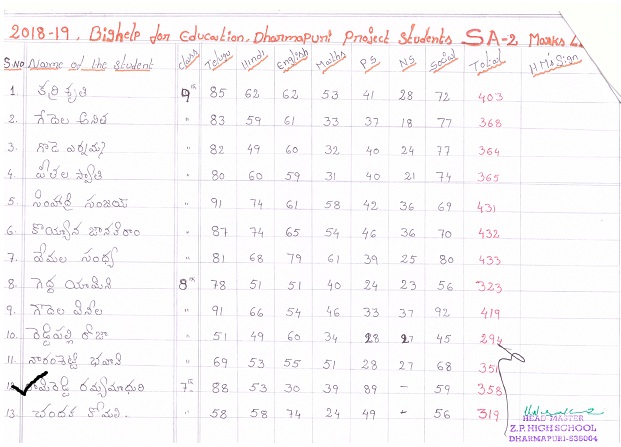 2018-19, Bighelp for Education, Dharmapuri Project Students SA-2 Marks
S.No Name of the Student class Telugu Hindi English Maths P.S N.S Social Total H.M's Sign
1. తర్రి కృతి 9th 85 62 62 53 41 28 72 403
2. గేదెల అనిత " 83 59 61 33 37 18 77 368
3. గొడె ఎర్నమ్మ " 82 49 60 32 40 24 77 364
4. పీతల స్వాతి " 80 60 59 31 40 21 74 365
5. సింహాద్రి సంజయ్ " 91 74 61 58 42 36 69 431
6. కొయ్యాన జానకిరాం " 87 74 65 54 46 36 70 432
7. వేమల సంధ్య " 81 68 79 61 39 25 80 433
8. గెడ్డ యామిని 8th 78 51 51 40 24 23 56 323
9. గొదెల వినీల " 91 66 54 46 33 37 92 419
10. రెడ్డిపల్లి రోజా " 51 49 60 34 28 27 45 294
11. నారంశెట్టి భవాని " 69 53 55 51 28 27 68 351
12. రామిరెడ్డి రమ్యమాధురి 7th 88 53 30 39 89 - 59 358
13. చందక కోమలి. " 58 58 74 24 49 - 56 319
HEAD MASTER
Z.P. HIGH SCHOOL
DHARMAPURI-535004